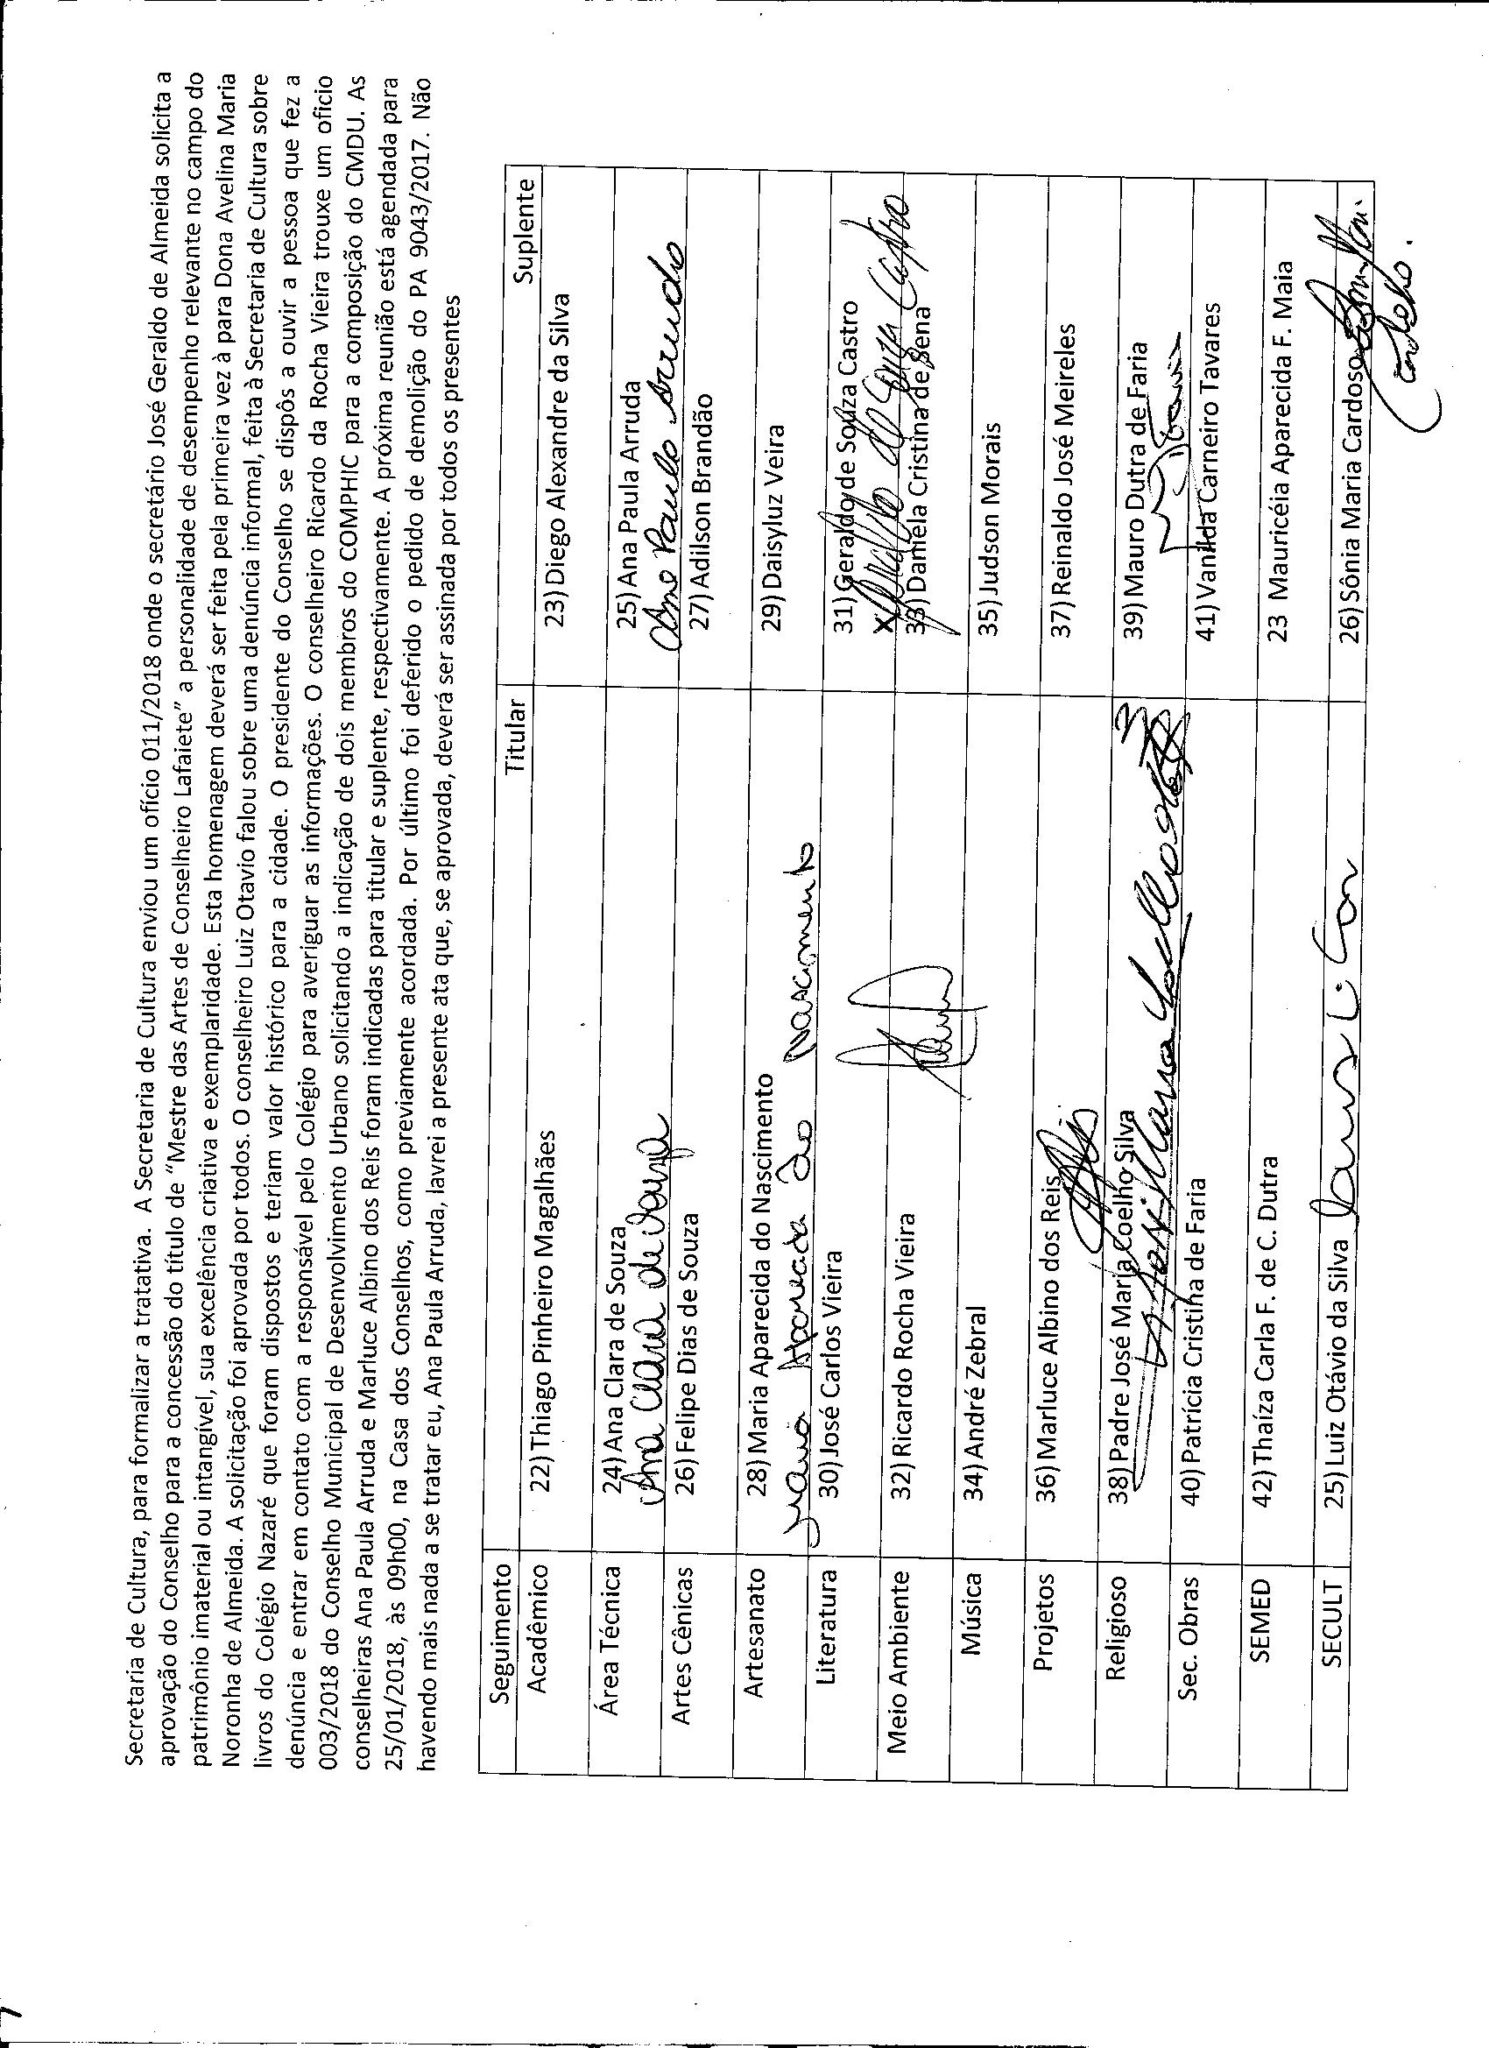 Secretaria de Cultura, para formalizar a tratativa. A Secretaria de Cultura enviou um ofício 011/2018 onde o secretário José Geraldo de Almeida solicita a
aprovação do Conselho para a concessão do título de “Mestre das Artes de Conselheiro Lafaiete” a personalidade de desempenho relevante no campo do
patrimônio imaterial ou intangível, sua excelência criativa e exemplaridade. Esta homenagem deverá ser feita pela primeira vez à para Dona Avelina Maria
Noronha de Almeida. A solicitação foi aprovada por todos. O conselheiro Luiz Otavio falou sobre uma denúncia informal, feita à Secretaria de Cultura sobre
livros do Colégio Nazaré que foram dispostos e teriam valor histórico para a cidade. O presidente do Conselho se dispôs a ouvir a pessoa que fez a
denúncia e entrar em contato com a responsável pelo Colégio para averiguar as informações. O conselheiro Ricardo da Rocha Vieira trouxe um oficio
003/2018 do Conselho Municipal de Desenvolvimento Urbano solicitando a indicação de dois membros do COMPHIC para a composição do CMDU. As
conselheiras Ana Paula Arruda e Marluce Albino dos Reis foram indicadas para titular e suplente, respectivamente. A próxima reunião está agendada para
25/01/2018, às 09h00, na Casa dos Conselhos, como previamente acordada. Por último foi deferido o pedido de demolição do PA 9043/2017. Não
havendo mais nada a se tratar eu, Ana Paula Arruda, lavrei a presente ata que, se aprovada, deverá ser assinada por todos os presentes
Seguimento Titular Suplente
Acadêmico 22) Thiago Pinheiro Magalhães 23) Diego Alexandre da Silva
Área Técnica 24) Ana Clara de Souza 25) Ana Paula Arruda
Ana Clara de Souza Ana Paula Arruda
Artes Cênicas 26) Felipe Dias de Souza 27) Adilson Brandão
Artesanato 28) Maria Aparecida do Nascimento 29) Daisyluz Veira
Maria Aparecida do Nascimento
Literatura 30) José Carlos Vieira 31) Geraldo de Souza Castro
x Geraldo de Souza Castro
Meio Ambiente 32) Ricardo Rocha Vieira 33) Daniela Cristina de Sena
Música 34) André Zebral 35) Judson Morais
Projetos 36) Marluce Albino dos Reis 37) Reinaldo José Meireles
Religioso 38) Padre José Maria Coelho Silva 39) Mauro Dutra de Faria
Sec. Obras 40) Patrícia Cristina de Faria 41) Vanilda Carneiro Tavares
SEMED 42) Thaíza Carla F. de C. Dutra 23 Mauricéia Aparecida F. Maia
SECULT 25) Luiz Otávio da Silva 26) Sônia Maria Cardoso